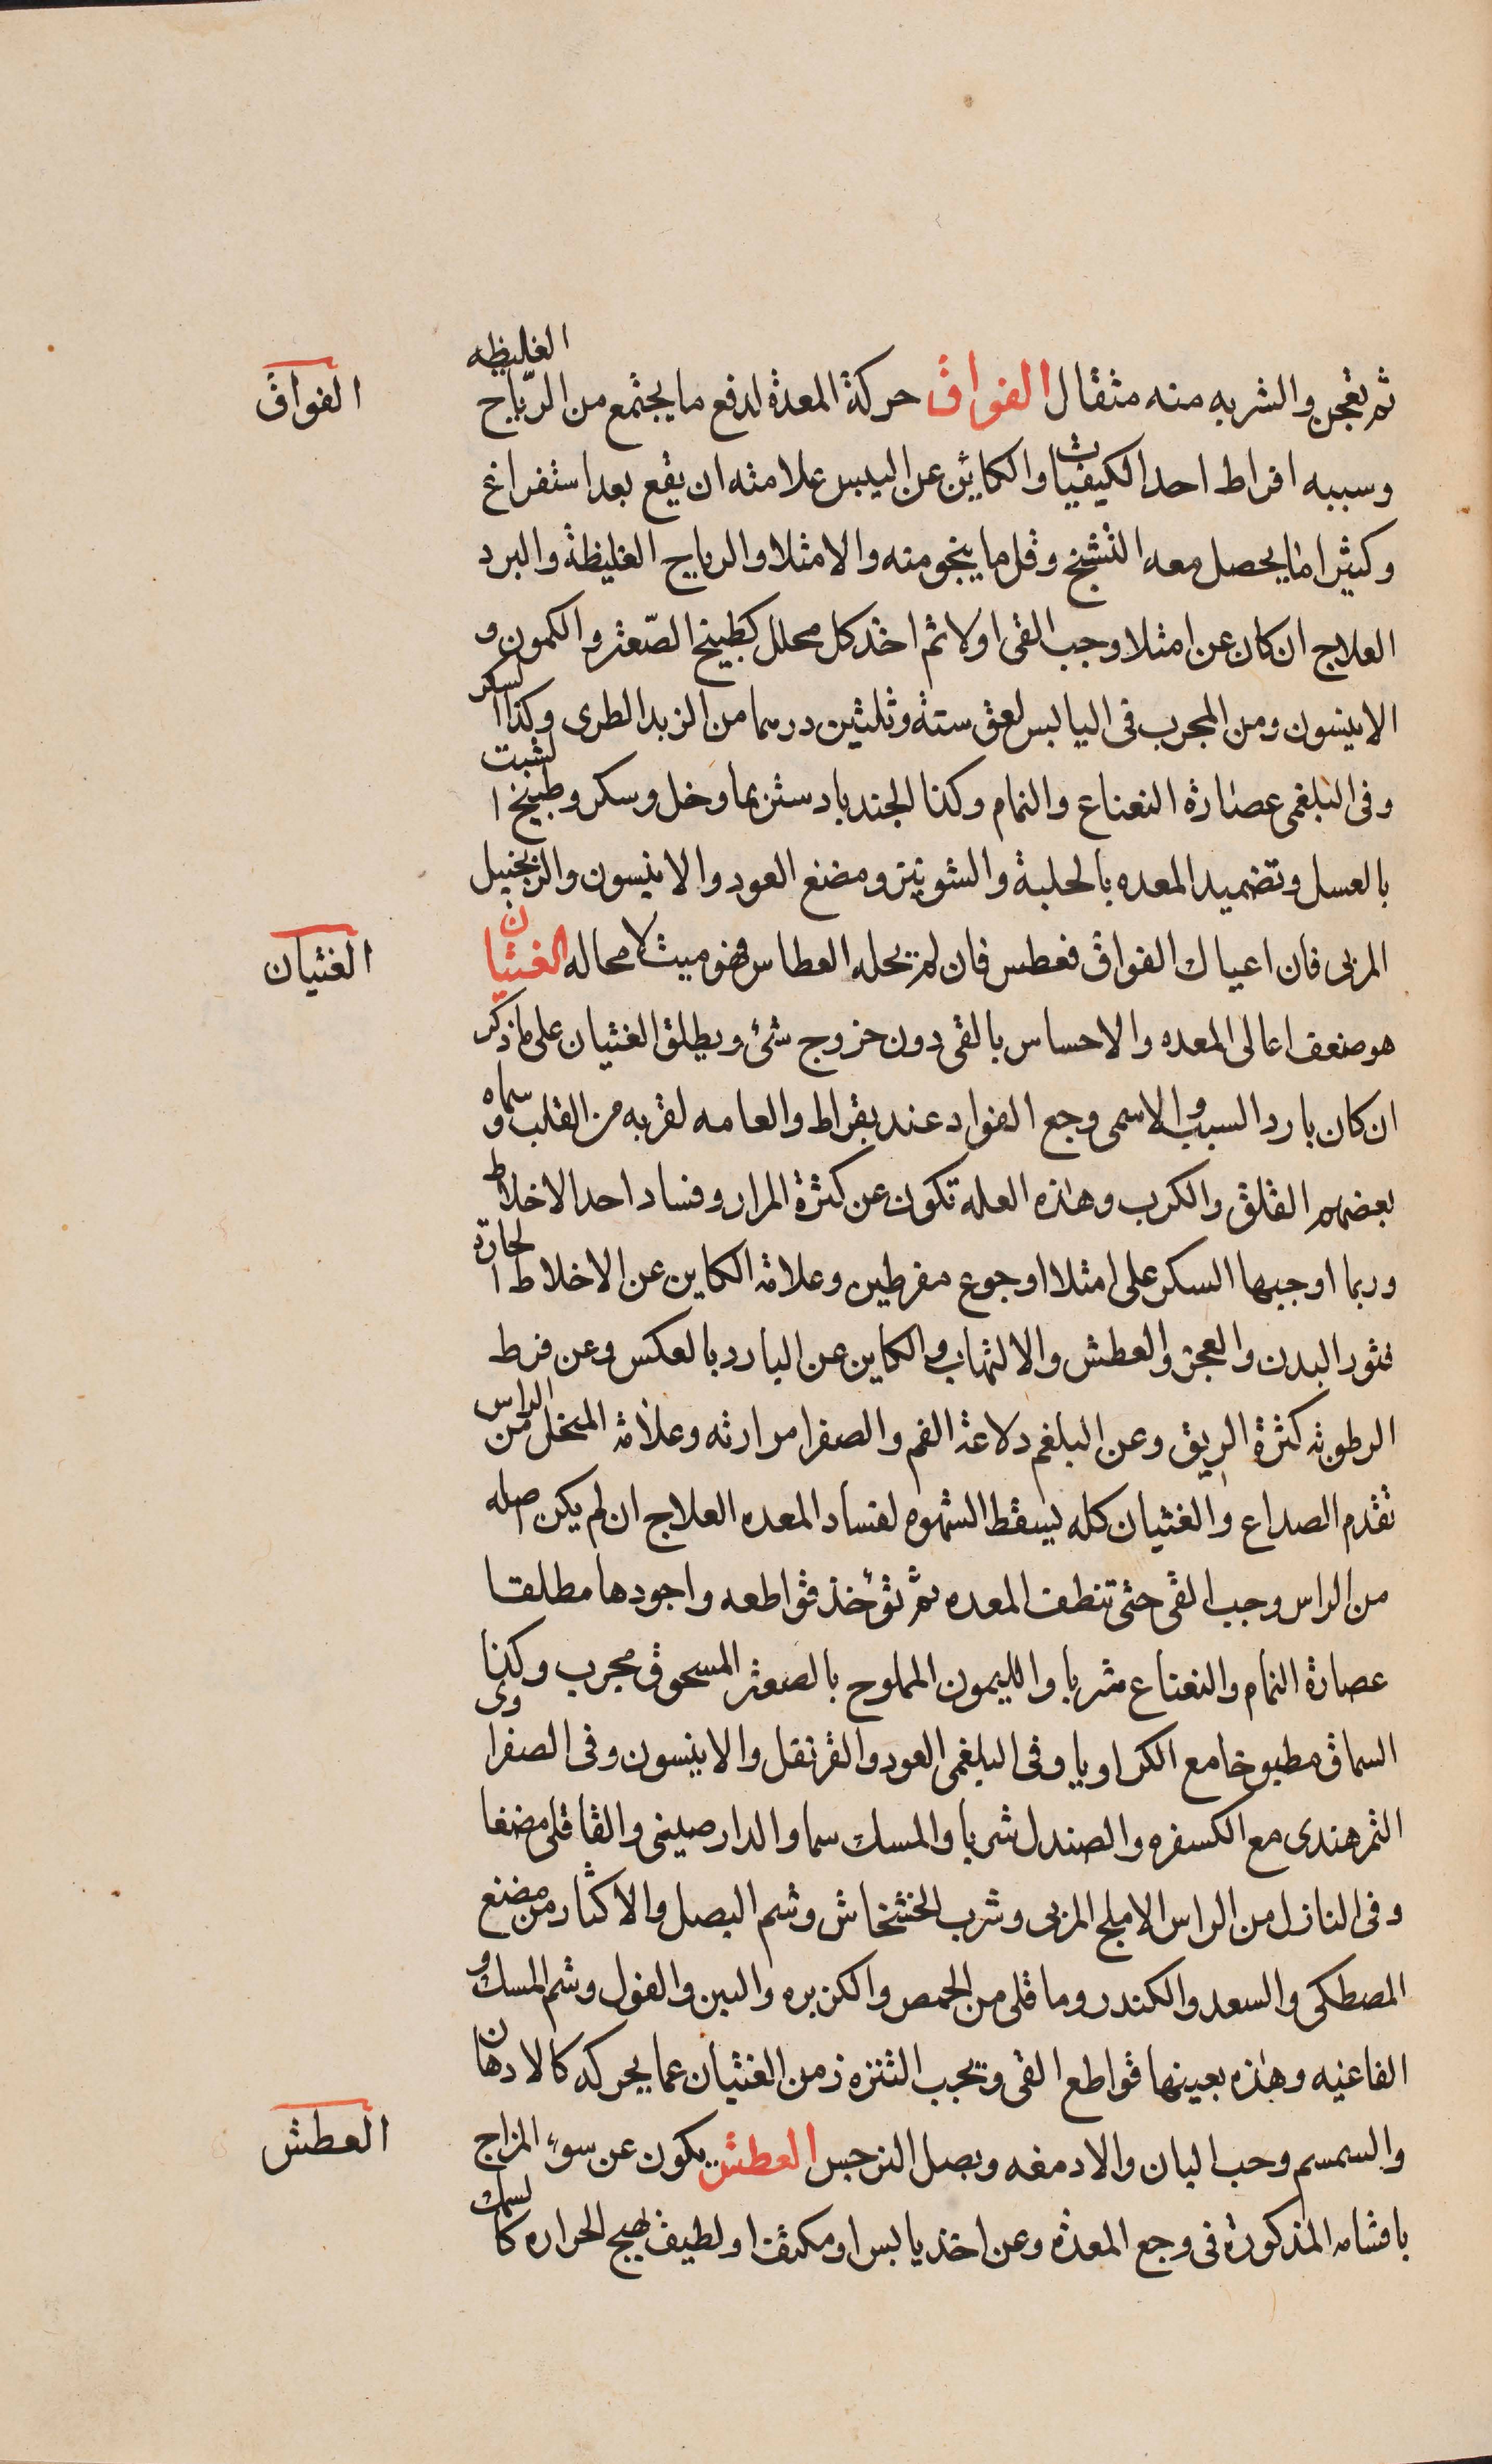 ثم تعجن والشربه منه مثقال الفواق حركة المعدة لدفع ما يجتمع من الرياح الغليظه
الفواق
وسببه افراط احد الكيفيات والكاين عن اليبس علامته ان يقع بعد استفراغ
وكثيرا ما يحصل معه التشنج وقل ما ينجو منه والامتلا والرياح الغليظة والبرد
العلاج ان كان عن امتلا وجب القى اولا ثم اخذ كل محلل كطبيخ الصّعتر والكمون و
الانيسون ومن المجرب فى اليابس لعق ستة وثلثين درهما من الزبد الطرى وكذا السكر
وفى البلغمى عصارة النعناع والنمام وكذا الجندبادستر بما وخل وسكر وطبيخ الشبت
بالعسل وتضميد المعده بالحلبة والشونيز ومضغ العود والانيسون والزنجبيل
المربى فان اعياك الفواق فعطس فان لم يحله العطاس فهو ميت لا محاله الغثيان
الغثيان
هو ضعف اعالى المعده والاحساس بالقى دون خروج شئ ويطلق الغثيان على ما ذكر
ان كان بارد السبب والا سمى وجع الفواد عند بقراط والعامه لقربه من القلب وسماه
بعضهم القلق والكرب وهذه العله تكون عن كثرة المرار وفساد احد الاخلاط
وربما اوجبها السكر على امتلا او جوع مفرطين وعلامة الكاين عن الاخلاط الحارة
فتور البدن والعجز والعطش والالتهاب والكاين عن البارد بالعكس وعن فرط
الرطوبة كثرة الريق وعن البلغم دلاعة الفم والصفرا مرارته وعلامة المنحل من الراس
تقدم الصداع والغثيان كله يسقط الشهوه لفساد المعده العلاج ان لم يكن اصله
من الراس وجب القى حتى تنظف المعده ثم تؤخذ قواطعه واجودها مطلقا
عصارة النمام والنعناع شربا والليمون المملوح بالصعتر المسحوق مجرب وكذا
السماق مطبوخا مع الكراويا وفى البلغمى العود والقرنفل والانيسون وفى الصفراوى
التمرهندى مع الكسفره والصندل شربا والمسك شما والدارصينى والقاقلى مضغا
وفى النازل من الراس الاملج المربى وشرب الخشخاش وشم البصل والاكثار من مضغ
المصطكى والسعد والكندر وما قلى من الحمص والكزبره والبن والفول وشم المسك و
الفاغيه وهذه بعينها قواطع القى ويجب التنزه زمن الغثيان عما يحركه كالادهان
والسمسم وحب البان والادمغه وبصل النرجس العطش يكون عن سوء المزاج
العطش
باقسامه المذكورة فى وجع المعدة وعن اخذ يابس او مكثف او لطيف يهيج الحراره كالسمك